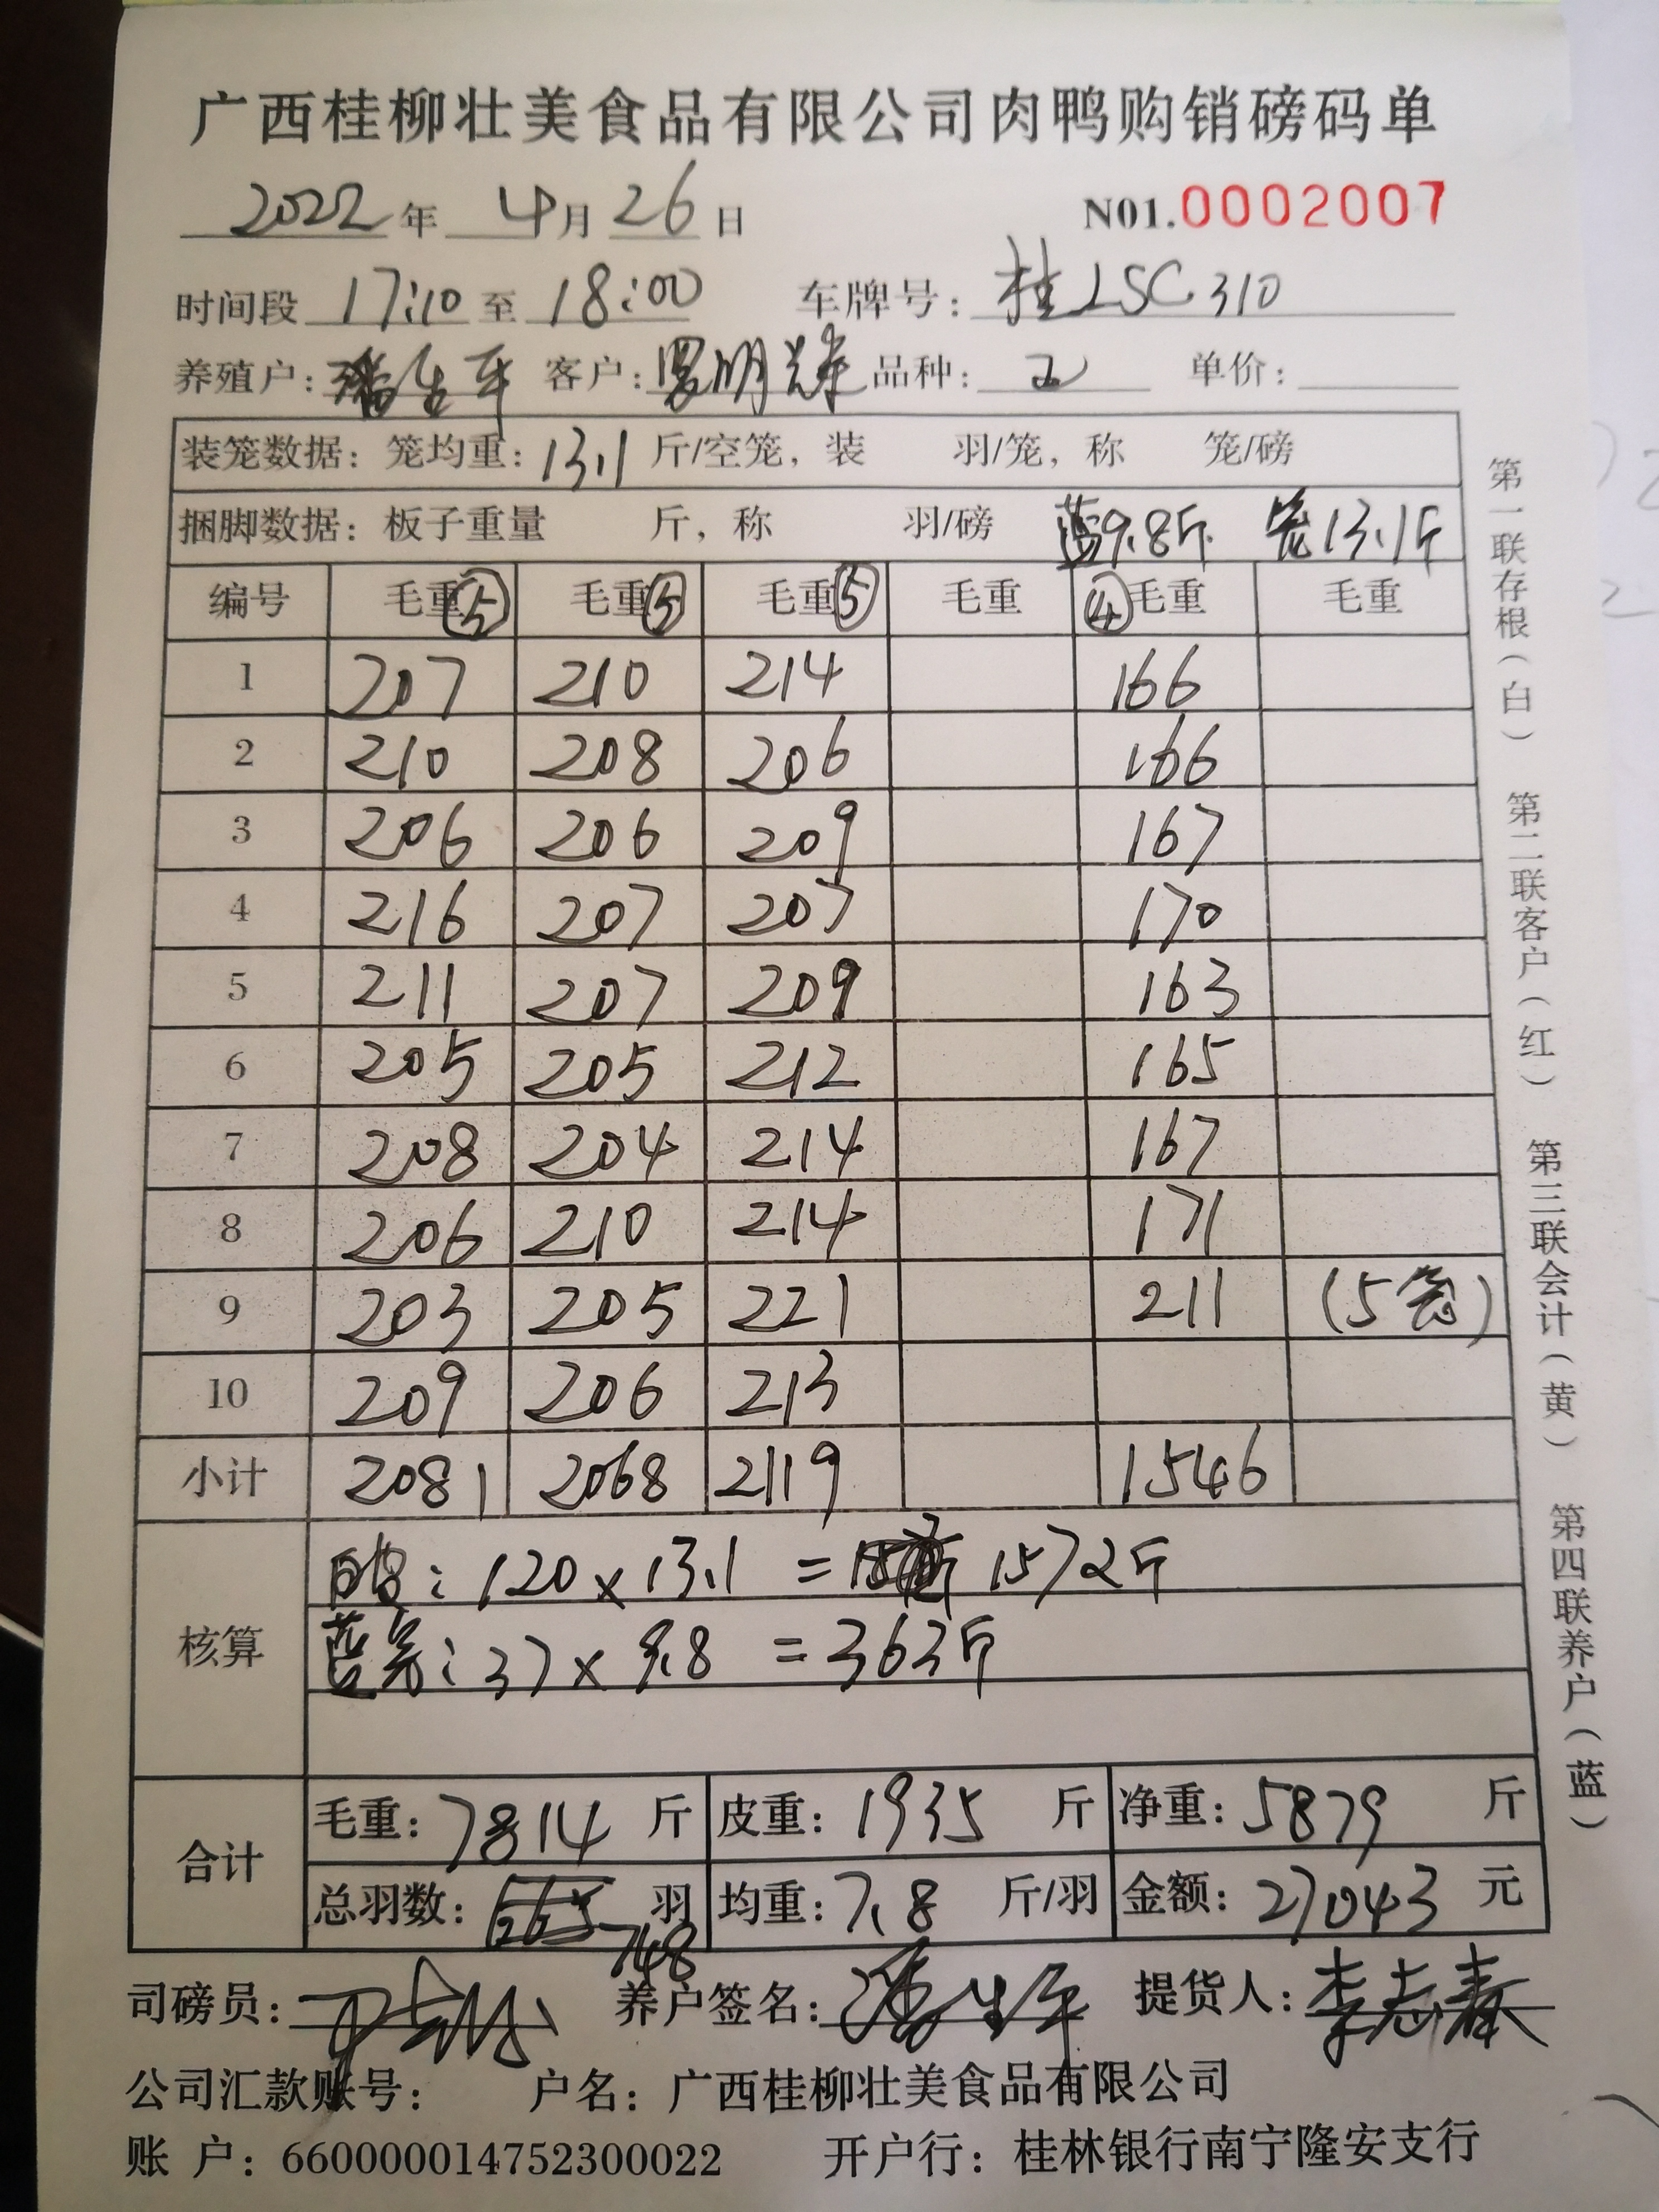 广西桂柳壮美食品有限公司肉鸭购销磅码单
2022年 4月26日 N01.0002007
时间段 17:10 至 18:00 车牌号: 桂LSC310
养殖户: 潘生平 客户: 罗明 品种: 单价:
装笼数据: 笼均重: 13.1 斤/空笼, 装 羽/笼, 称 笼/磅
捆脚数据: 板子重量 斤, 称 羽/磅 蓝9.8斤 笼13.1斤
编号 毛重⑤ 毛重⑤ 毛重⑤ 毛重 ④毛重 毛重
1 207 210 214 166
2 210 208 206 166
3 206 206 209 167
4 216 207 207 170
5 211 207 209 163
6 205 205 212 165
7 208 204 214 167
8 206 210 214 171
9 203 205 221 211 (5笼)
10 209 206 213
小计 2081 2068 2119 1546
核算
: 120×13.1 = 1572斤
蓝笼: 37×9.8 = 363斤
合计
毛重: 7814 斤 皮重: 1935 斤 净重: 5879 斤
总羽数: 748 羽 均重: 7.8 斤/羽 金额: 27043 元
司磅员: 养户签名: 潘生平 提货人: 李志春
公司汇款账号: 户名: 广西桂柳壮美食品有限公司
账 户: 660000014752300022 开户行: 桂林银行南宁隆安支行
第一联存根(白) 第二联客户(红) 第三联会计(黄) 第四联养户(蓝)